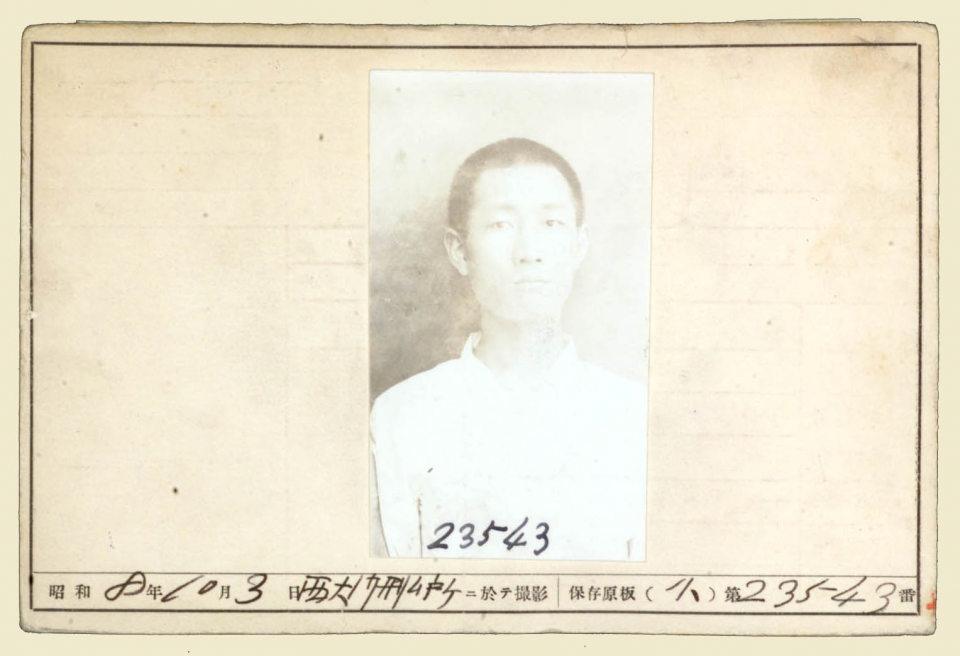 23543
昭和8年10月3日西大門刑務所ニ於テ撮影 保存原板(小)第23543番